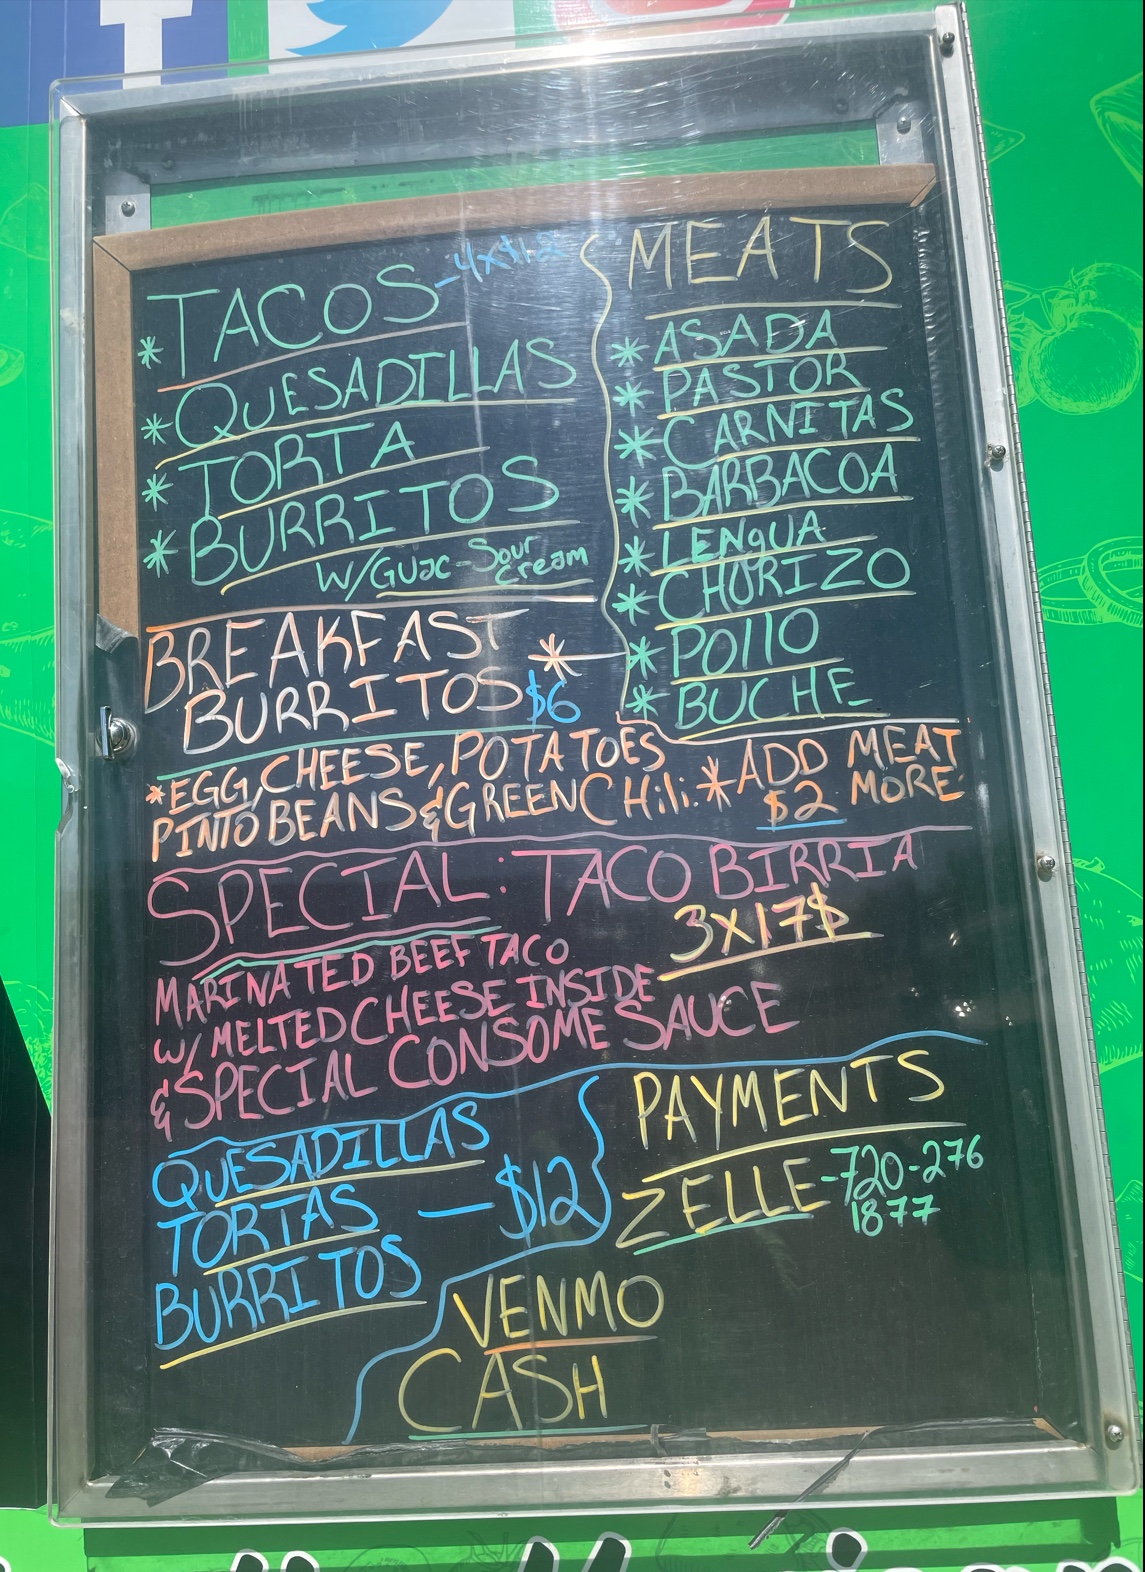 * TACOS - 4x$12
* QUESADILLAS
* TORTA
* BURRITOS
W/Guac - Sour Cream
MEATS
* ASADA
* PASTOR
* CARNITAS
* BARBACOA
* LENGUA
* CHORIZO
* POllO
* BUCHE
BREAKFAST *
BURRITOS $6
*EGG, CHEESE, POTATOES
PINTO BEANS & GREEN CHili.
* ADD MEAT
$2 MORE
SPECIAL: TACO BIRRIA
3X17$
MARINATED BEEF TACO
W/ MELTED CHEESE INSIDE
& SPECIAL CONSOME SAUCE
QUESADILLAS
TORTAS — $12
BURRITOS
PAYMENTS
ZELLE - 720-276
1877
VENMO
CASH